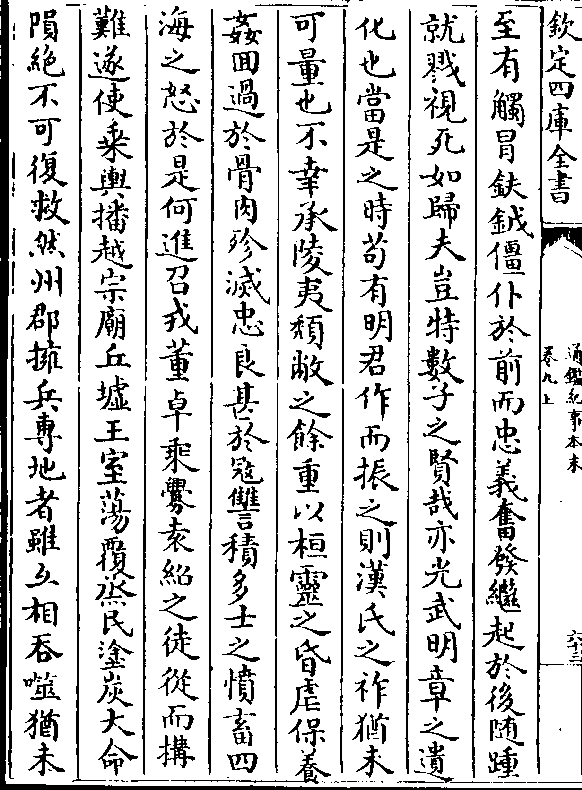 欽定四庫全書
通鑑紀事本末
卷九上
六十三
至有觸冒鈇鉞僵仆於前而忠義奮發繼起於後随踵
就戮視死如歸夫豈特數子之賢哉亦光武明章之遺
化也當是之時苟有明君作而振之則漢氏之祚猶未
可量也不幸承陵夷頽敝之餘重以桓靈之昏虐保養
姦回過於骨肉殄滅忠良甚於寇讐積多士之憤畜四
海之怒於是何進召戎董卓乗釁袁紹之徒從而搆
難遂使乗輿播越宗廟丘墟王室蕩覆烝民塗炭大命
隕絶不可復救然州郡擁兵専地者雖互相吞噬猶未